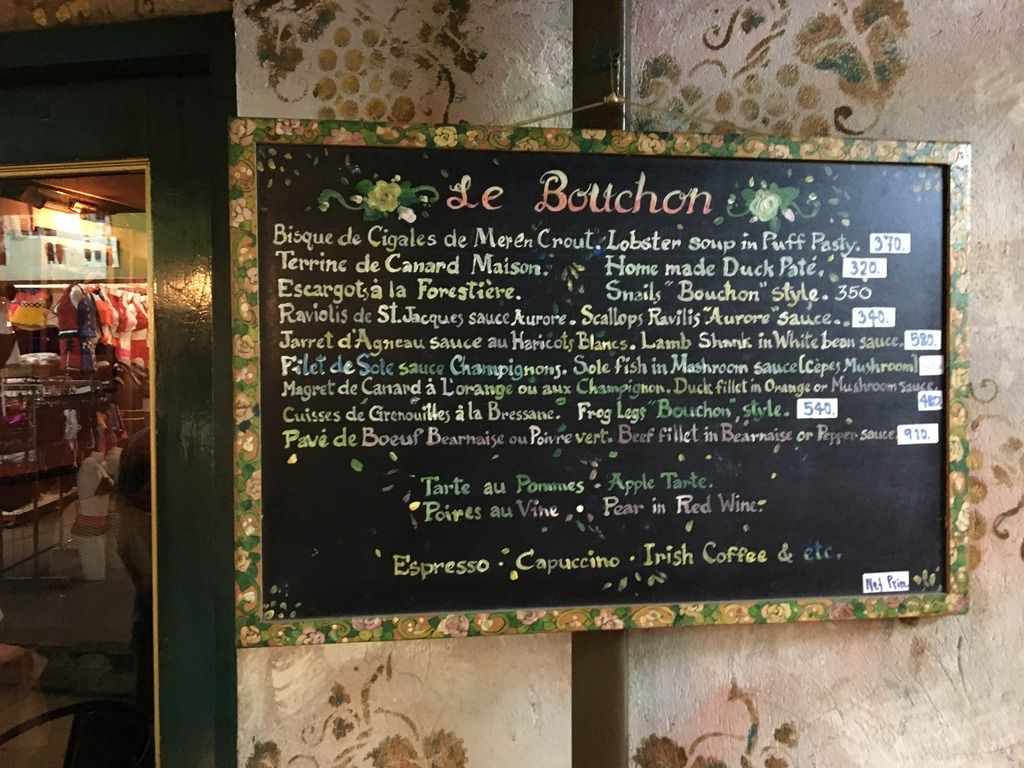 Le Bouchon
Bisque de Cigales de Mer en Crout. Lobster soup in Puff Pasty. 370.
Terrine de Canard Maison. Home made Duck Paté. 320.
Escargots à la Forestière. Snails "Bouchon" style. 350
Raviolis de St.Jacques sauce Aurore. Scallops Ravilis "Aurore" sauce.. 340.
Jarret d'Agneau sauce au Haricots Blancs. Lamb Shank in White bean sauce. 580.
Filet de Sole sauce Champignons. Sole fish in Mashroom sauce (Cèpes Mushroom)
Magret de Canard à L'orange ou aux Champignon. Duck fillet in Orange or Mushroom sauce. 480
Cuisses de Grenouilles à la Bressane. Frog Legs "Bouchon" style. 540.
Pavé de Boeuf Bearnaise ou Poivre vert. Beef fillet in Bearnaise or Pepper sauce 910.
Tarte au Pommes - Apple Tarte.
Poires au Vine . Pear in Red Wine.
Espresso · Capuccino · Irish Coffee & etc.
Net